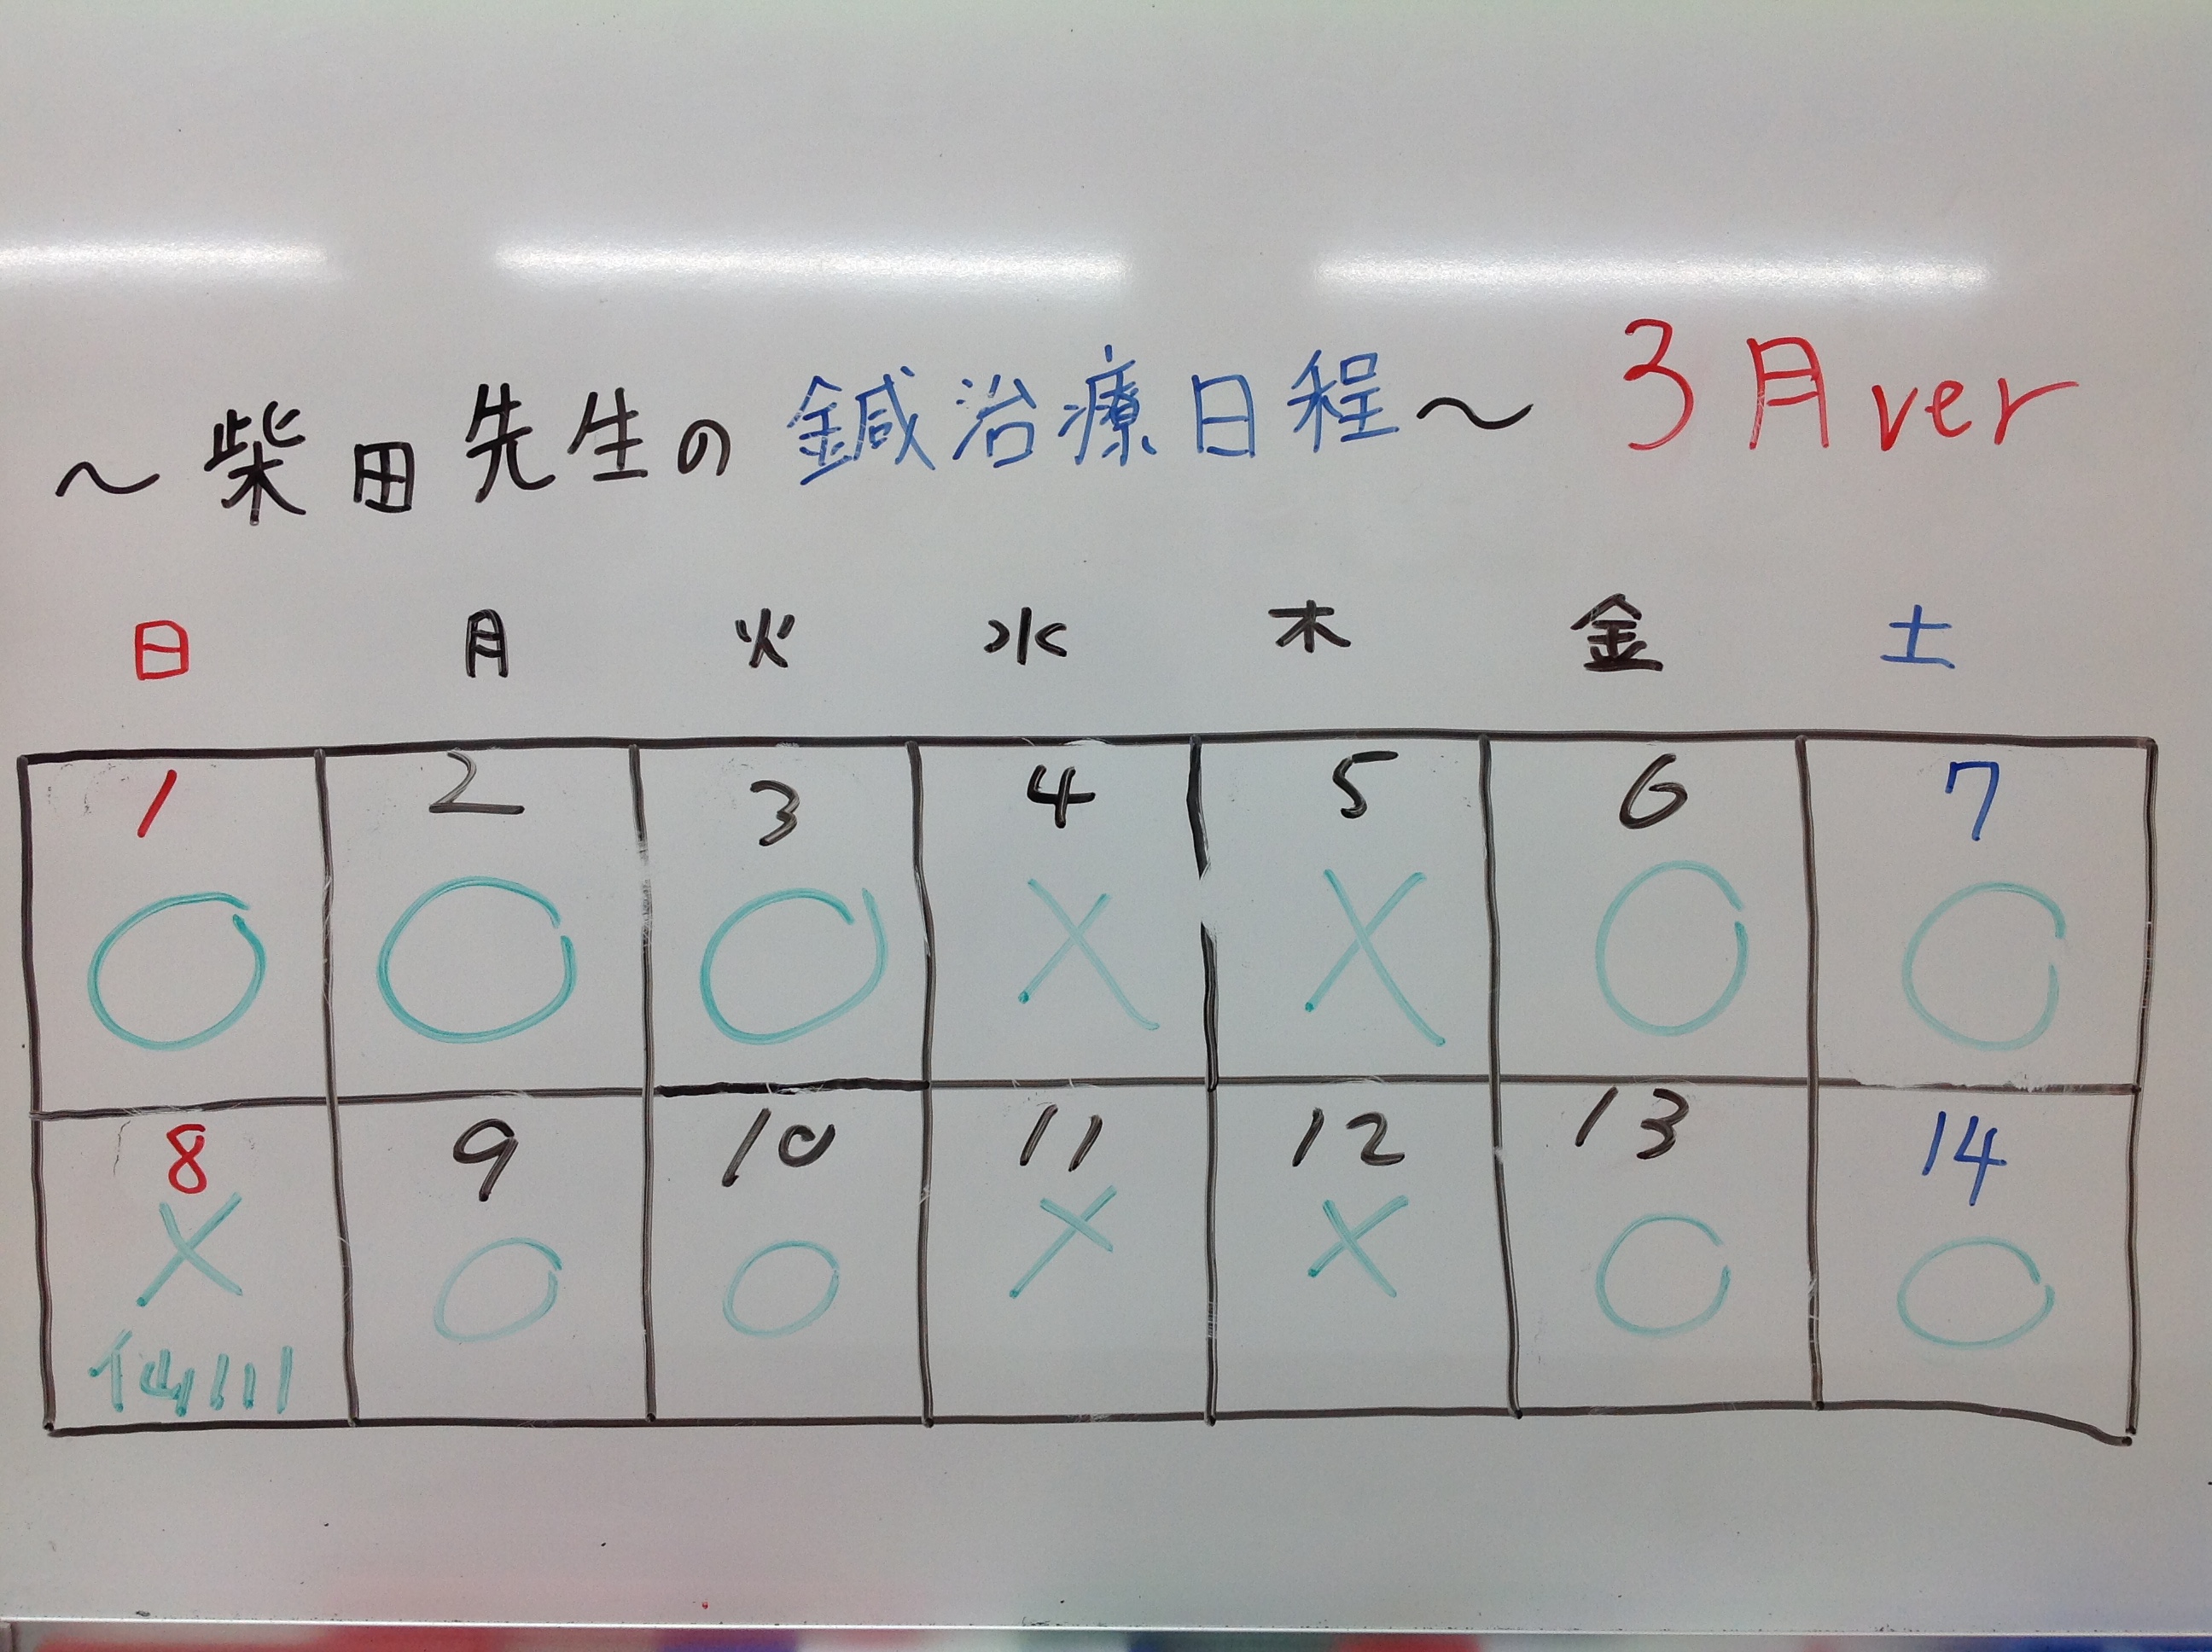 ～柴田先生の鍼治療日程～ 3月ver
日 月 火 水 木 金 土
1 2 3 4 5 6 7
○ ○ ○ × × ○ ○
8 9 10 11 12 13 14
× ○ ○ × × ○ ○